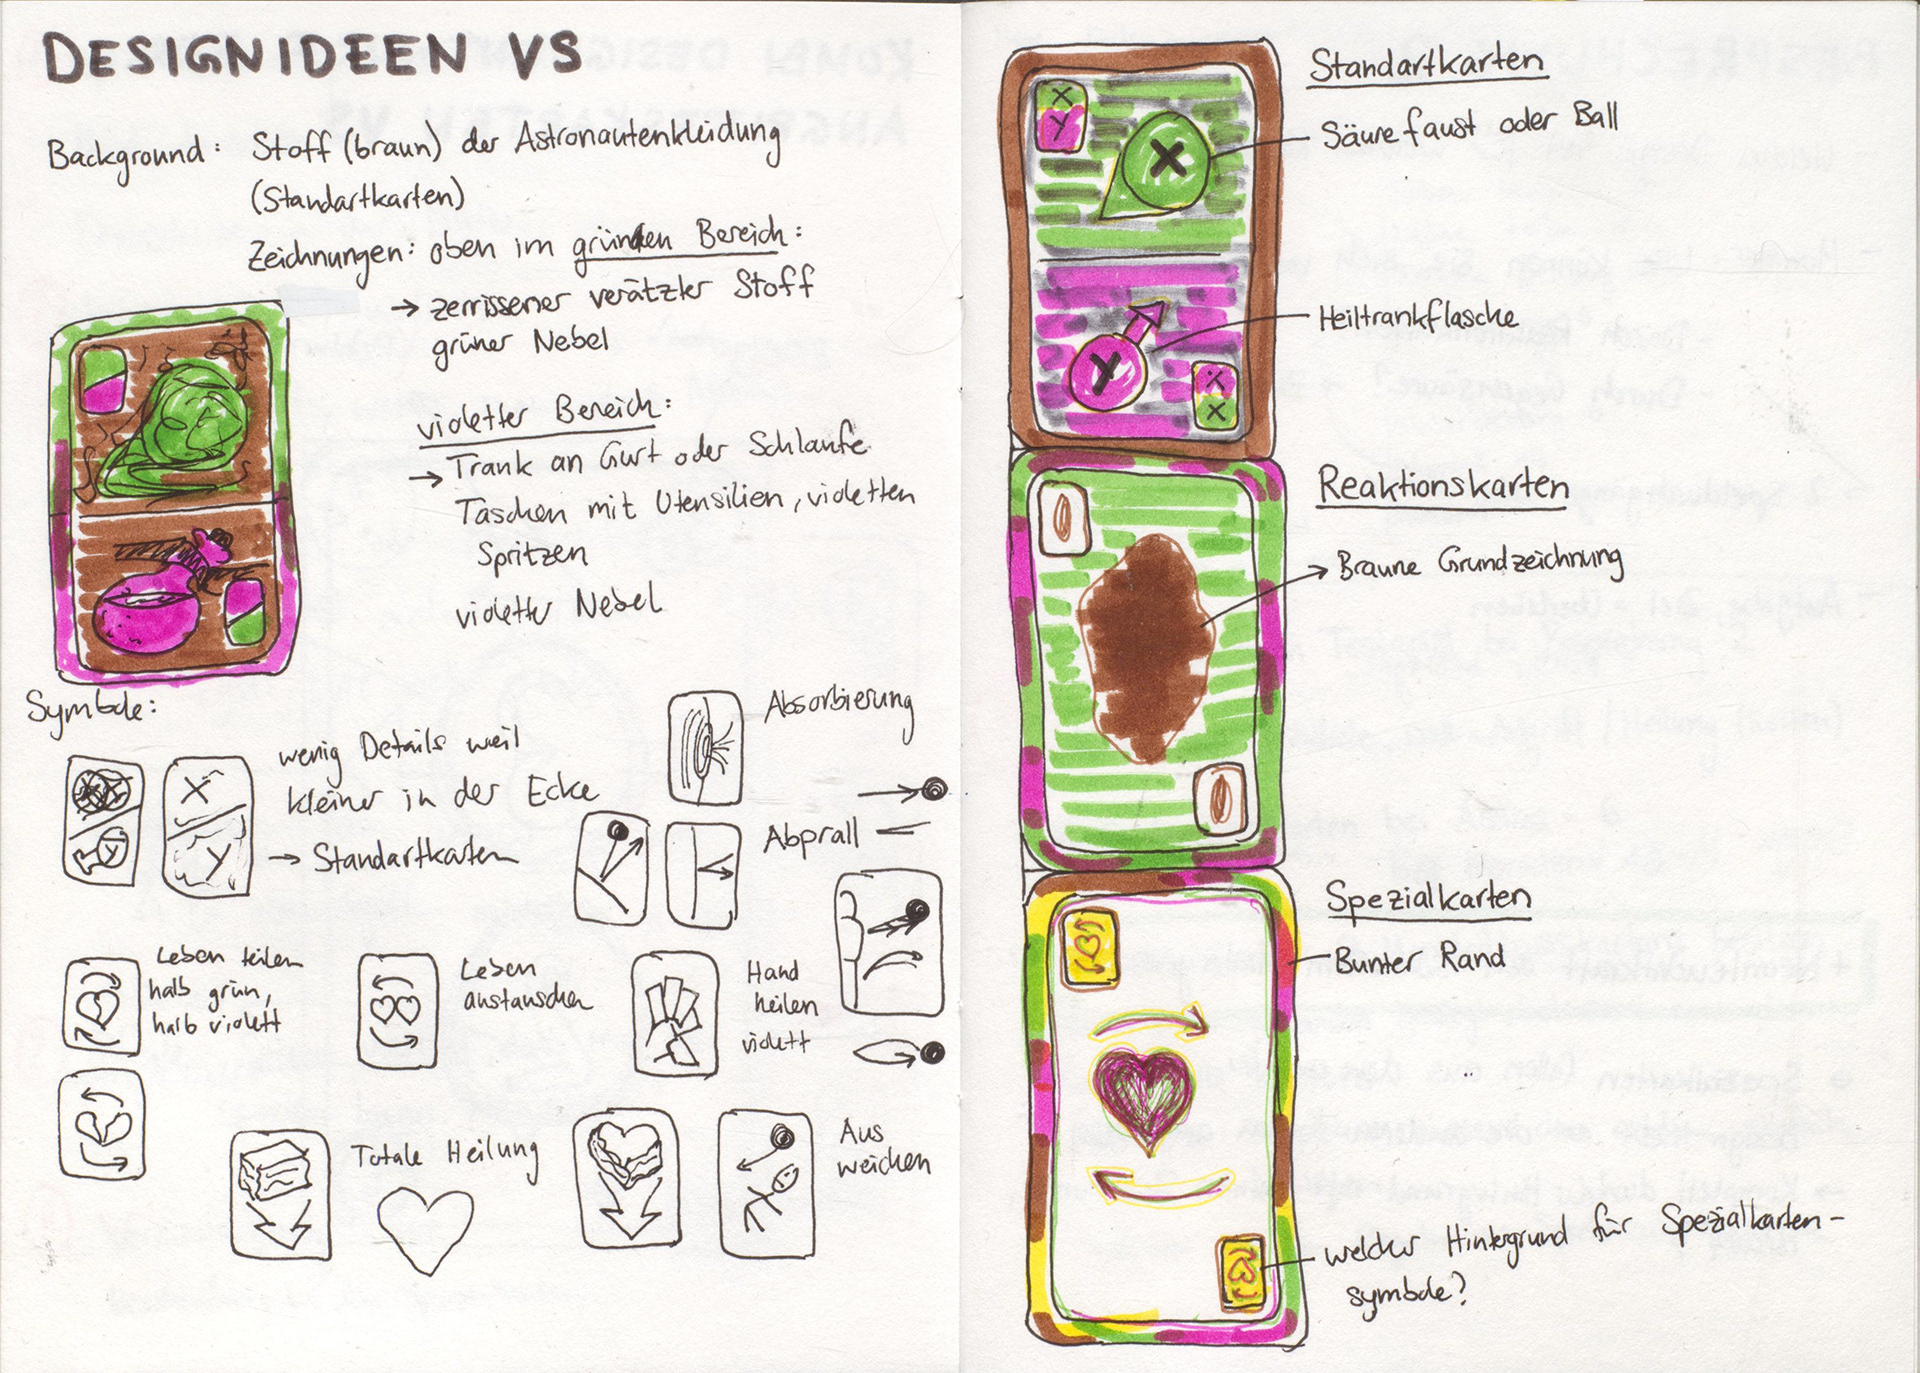 DESIGNIDEEN VS
Background: Stoff (braun) der Astronautenkleidung
(Standartkarten)
Zeichnungen: oben im grünen Bereich:
→ zerrissener verätzter Stoff
grüner Nebel
violetter Bereich:
→ Trank an Gurt oder Schlaufe
Taschen mit Utensilien, violetten
Spritzen
violetter Nebel
Symbole:
wenig Details weil
kleiner in der Ecke
→ Standartkarten
X
Y
X
Y
Absorbierung
Abprall
Leben teilen
halb grün,
halb violett
Leben
austauschen
Hand
heilen
violett
Totale Heilung
Aus
weichen
Standartkarten
Säurefaust oder Ball
Heiltrankflasche
X
Y
X
Y
Y
X
Reaktionskarten
Braune Grundzeichnung
Spezialkarten
Bunter Rand
welcher Hintergrund für Spezialkarten-
symbole?